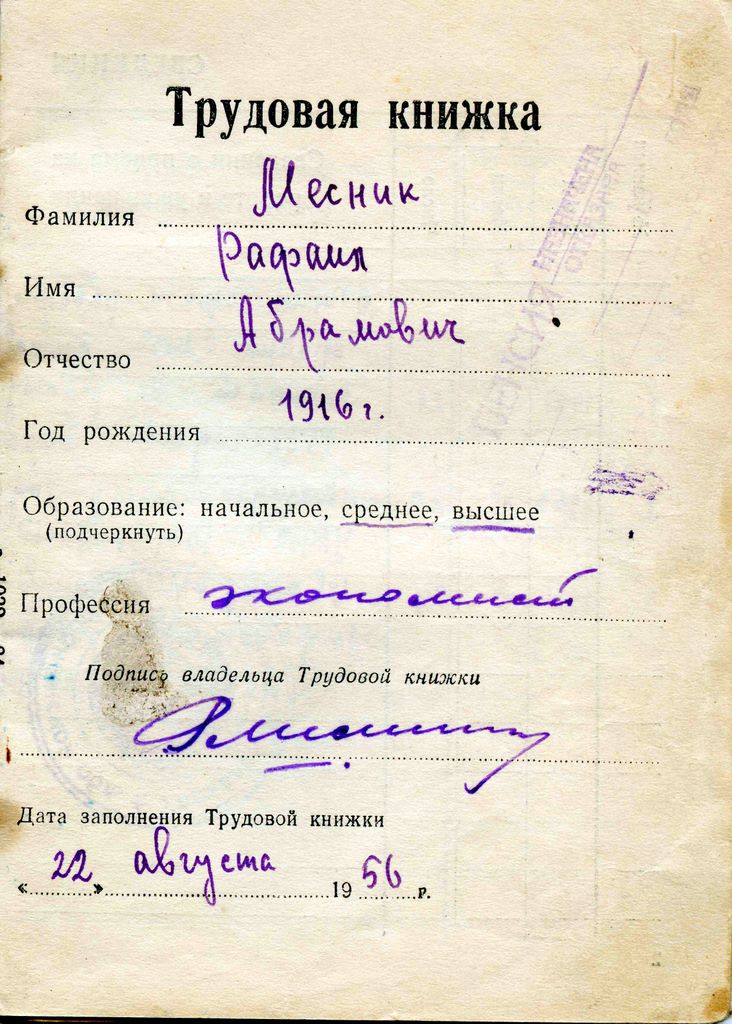 Трудовая книжка
Фамилия Месник
Имя Рафаил
Отчество Абрамович
Год рождения 1916 г.
Образование: начальное, среднее, высшее
(подчеркнуть)
Профессия экономист
Подпись владельца Трудовой книжки
Дата заполнения Трудовой книжки
« 22 » августа 1956 г.
ПЕНСИЯ НАЗНАЧЕНА